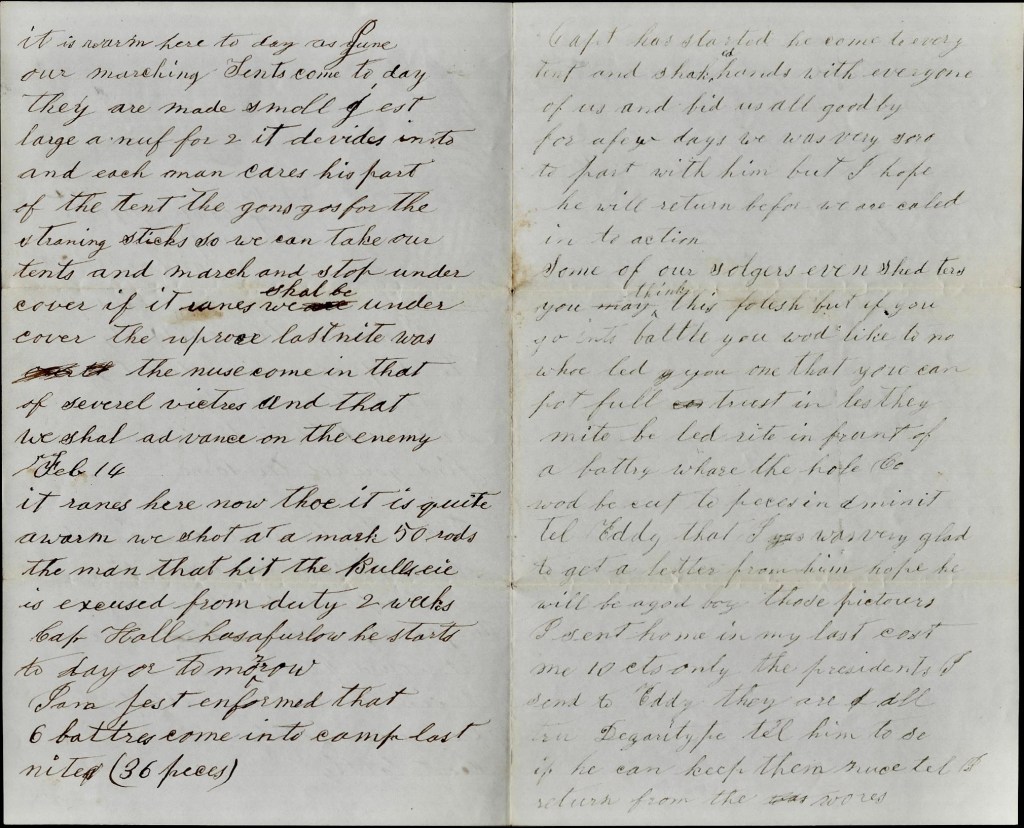 it is warm here to day as June
our marching Tents come to day
they are made small jest
large a nuf for 2 it devides in to
and each man cares his part
of the tent the gons gos for the
straning sticks so we can take our
tents and march and stop under
cover if it ranes we shal be under
cover the uproce last nite was
the nuse come in that
of severel victres and that
we shal advance on the enemy
Feb 14
it ranes here now thoe it is quite
a warm we shot at a mark 50 rods
the man that hit the Bulls eie
is excused from duty 2 weeks
Cap Hall has a furlow he starts
to day or to morow
I am jest enformed that
6 battres come into camp last
nite (36 peces)
Capt has started he come to every
tent and shaked hands with everyone
of us and bid us all good by
for a few days we was very soro
to part with him but I hope
he will return befor we are caled
in to action
Some of our solgers even shed ters
you may think this folish but if you
go into battle you wod like to no
whoe led you one that you can
pot full trust in les they
mite be led rite in frunt of
a battry whare the hole Co
wod be cut to peces in a minit
tel Eddy that I was very glad
to get a letter from him hope he
will be a god boy those pictours
I sent home in my last cost
me 10 cts only the presidents I
send to Eddy they are all
Degaritype tel him to se
if he can keep them nuce tel I
return from the wores